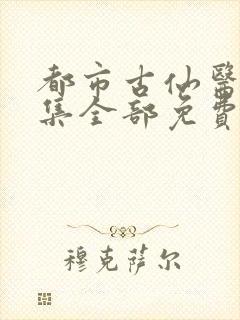 都市古仙醫
集全部免費
穆克萨尔